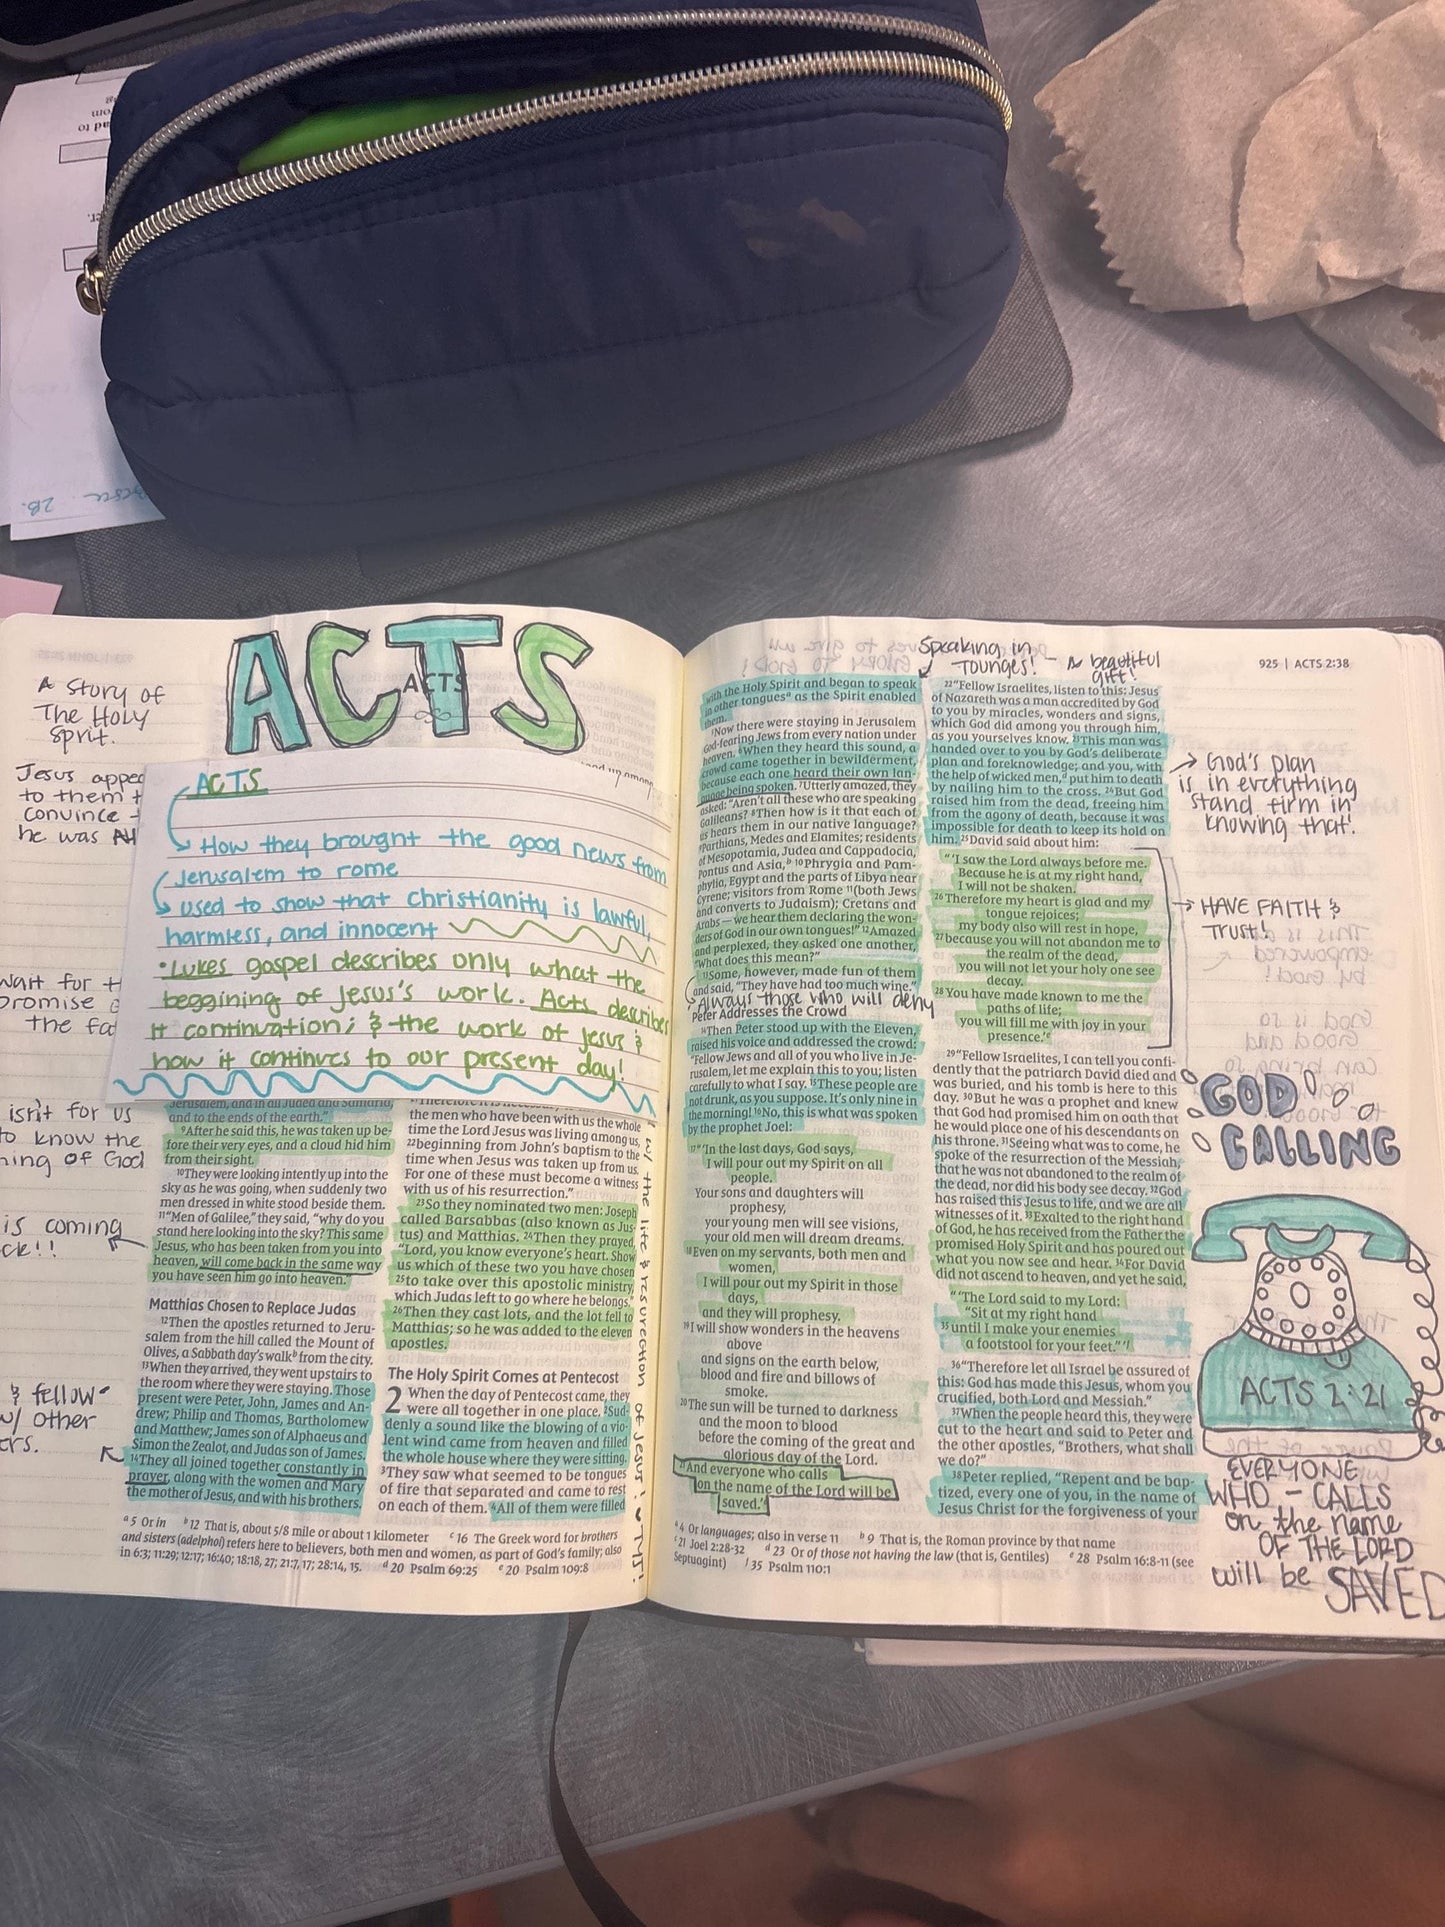 ACTS
ACTS
A Story of
The Holy
Sprit.
Jesus
to them
convince
he was
wait for
promise
the
isn't for us
to know the
of God
is coming
& fellow
w/ other
ACTS
How they brought the good news from
Jerusalem to rome
used to show that christianity is lawful,
harmless, and innocent
•Lukes gospel describes only what the
beggining of Jesus's work. Acts describes
it continuation; & the work of Jesus &
how it continues to our present day!
Jerusalem, and in all Judea and Samaria,
and to the ends of the earth."
9After he said this, he was taken up be-
fore their very eyes, and a cloud hid him
from their sight.
10They were looking intently up into the
sky as he was going, when suddenly two
men dressed in white stood beside them.
11"Men of Galilee," they said, "why do you
stand here looking into the sky? This same
Jesus, who has been taken from you into
heaven, will come back in the same way
you have seen him go into heaven."
Matthias Chosen to Replace Judas
12Then the apostles returned to Jeru-
salem from the hill called the Mount of
Olives, a Sabbath day's walkb from the city.
13When they arrived, they went upstairs to
the room where they were staying. Those
present were Peter, John, James and An-
drew; Philip and Thomas, Bartholomew
and Matthew; James son of Alphaeus and
Simon the Zealot, and Judas son of James.
14They all joined together constantly in
prayer, along with the women and Mary
the mother of Jesus, and with his brothers.
the men who have been with us the whole
time the Lord Jesus was living among us,
22beginning from John's baptism to the
time when Jesus was taken up from us.
For one of these must become a witness
with us of his resurrection."
23So they nominated two men: Joseph
called Barsabbas (also known as Jus-
tus) and Matthias. 24Then they prayed,
"Lord, you know everyone's heart. Show
us which of these two you have chosen
25to take over this apostolic ministry,
which Judas left to go where he belongs."
26Then they cast lots, and the lot fell to
Matthias; so he was added to the eleven
apostles.
The Holy Spirit Comes at Pentecost
2 When the day of Pentecost came, they
were all together in one place. 2Sud-
denly a sound like the blowing of a vio-
lent wind came from heaven and filled
the whole house where they were sitting.
3They saw what seemed to be tongues
of fire that separated and came to rest
on each of them. 4All of them were filled
w/ the life & resurection of Jesus!
a 5 Or in b 12 That is, about 5/8 mile or about 1 kilometer c 16 The Greek word for brothers
and sisters (adelphoi) refers here to believers, both men and women, as part of God's family; also
in 6:3; 11:29; 12:17; 16:40; 18:18, 27; 21:7, 17; 28:14, 15. d 20 Psalm 69:25 e 20 Psalm 109:8
Speaking in
Tounges! - A beautiful
gift!
925 | ACTS 2:38
with the Holy Spirit and began to speak
in other tonguesa as the Spirit enabled
them.
5Now there were staying in Jerusalem
God-fearing Jews from every nation under
heaven. 6When they heard this sound, a
crowd came together in bewilderment,
because each one heard their own lan-
guage being spoken. 7Utterly amazed, they
asked: "Aren't all these who are speaking
Galileans? 8Then how is it that each of
us hears them in our native language?
9Parthians, Medes and Elamites; residents
of Mesopotamia, Judea and Cappadocia,
Pontus and Asia,b 10Phrygia and Pam-
phylia, Egypt and the parts of Libya near
Cyrene; visitors from Rome 11(both Jews
and converts to Judaism); Cretans and
Arabs—we hear them declaring the won-
ders of God in our own tongues!" 12Amazed
and perplexed, they asked one another,
"What does this mean?"
13Some, however, made fun of them
and said, "They have had too much wine."
Always those who will deny
Peter Addresses the Crowd
14Then Peter stood up with the Eleven,
raised his voice and addressed the crowd:
"Fellow Jews and all of you who live in Je-
rusalem, let me explain this to you; listen
carefully to what I say. 15These people are
not drunk, as you suppose. It's only nine in
the morning! 16No, this is what was spoken
by the prophet Joel:
17"'In the last days, God says,
I will pour out my Spirit on all
people.
Your sons and daughters will
prophesy,
your young men will see visions,
your old men will dream dreams.
18Even on my servants, both men and
women,
I will pour out my Spirit in those
days,
and they will prophesy.
19I will show wonders in the heavens
above
and signs on the earth below,
blood and fire and billows of
smoke.
20The sun will be turned to darkness
and the moon to blood
before the coming of the great and
glorious day of the Lord.
21And everyone who calls
on the name of the Lord will be
saved.'c
22"Fellow Israelites, listen to this: Jesus
of Nazareth was a man accredited by God
to you by miracles, wonders and signs,
which God did among you through him,
as you yourselves know. 23This man was
handed over to you by God's deliberate
plan and foreknowledge; and you, with
the help of wicked men,d put him to death
by nailing him to the cross. 24But God
raised him from the dead, freeing him
from the agony of death, because it was
impossible for death to keep its hold on
him. 25David said about him:
"'I saw the Lord always before me.
Because he is at my right hand,
I will not be shaken.
26Therefore my heart is glad and my
tongue rejoices;
my body also will rest in hope,
27because you will not abandon me to
the realm of the dead,
you will not let your holy one see
decay.
28You have made known to me the
paths of life;
you will fill me with joy in your
presence.'e
29"Fellow Israelites, I can tell you confi-
dently that the patriarch David died and
was buried, and his tomb is here to this
day. 30But he was a prophet and knew
that God had promised him on oath that
he would place one of his descendants on
his throne. 31Seeing what was to come, he
spoke of the resurrection of the Messiah,
that he was not abandoned to the realm of
the dead, nor did his body see decay. 32God
has raised this Jesus to life, and we are all
witnesses of it. 33Exalted to the right hand
of God, he has received from the Father the
promised Holy Spirit and has poured out
what you now see and hear. 34For David
did not ascend to heaven, and yet he said,
"'The Lord said to my Lord:
"Sit at my right hand
35until I make your enemies
a footstool for your feet."'f
36"Therefore let all Israel be assured of
this: God has made this Jesus, whom you
crucified, both Lord and Messiah."
37When the people heard this, they were
cut to the heart and said to Peter and
the other apostles, "Brothers, what shall
we do?"
38Peter replied, "Repent and be bap-
tized, every one of you, in the name of
Jesus Christ for the forgiveness of your
a 4 Or languages; also in verse 11 b 9 That is, the Roman province by that name
c 21 Joel 2:28-32 d 23 Or of those not having the law (that is, Gentiles) e 28 Psalm 16:8-11 (see
Septuagint) f 35 Psalm 110:1
God's plan
is in everything
stand firm in
knowing that!
HAVE FAITH &
Trust!
GOD
CALLING
ACTS 2:21
EVERYONE
WHO - CALLS
on the name
OF THE LORD
will be SAVED